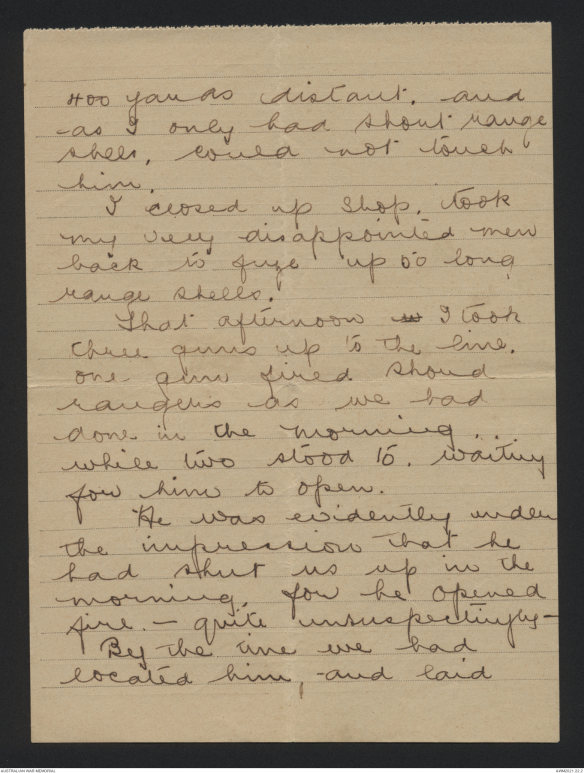 400 yards distant. and
as I only had short range
shells, could not touch
him.
I closed up shop, took
my very disappointed men
back to fuze up 50 long
range shells.
That afternoon I took
three guns up to the line.
one gun fired
rangers as we had
done in the morning...
while two stood to. waiting
for him to open.
He was evidently under
the impression that he
had shut us up in the
morning, for he opened
fire. - quite unsuspectingly -
By the time we had
located him, and laid
AUSTRALIAN WAR MEMORIAL